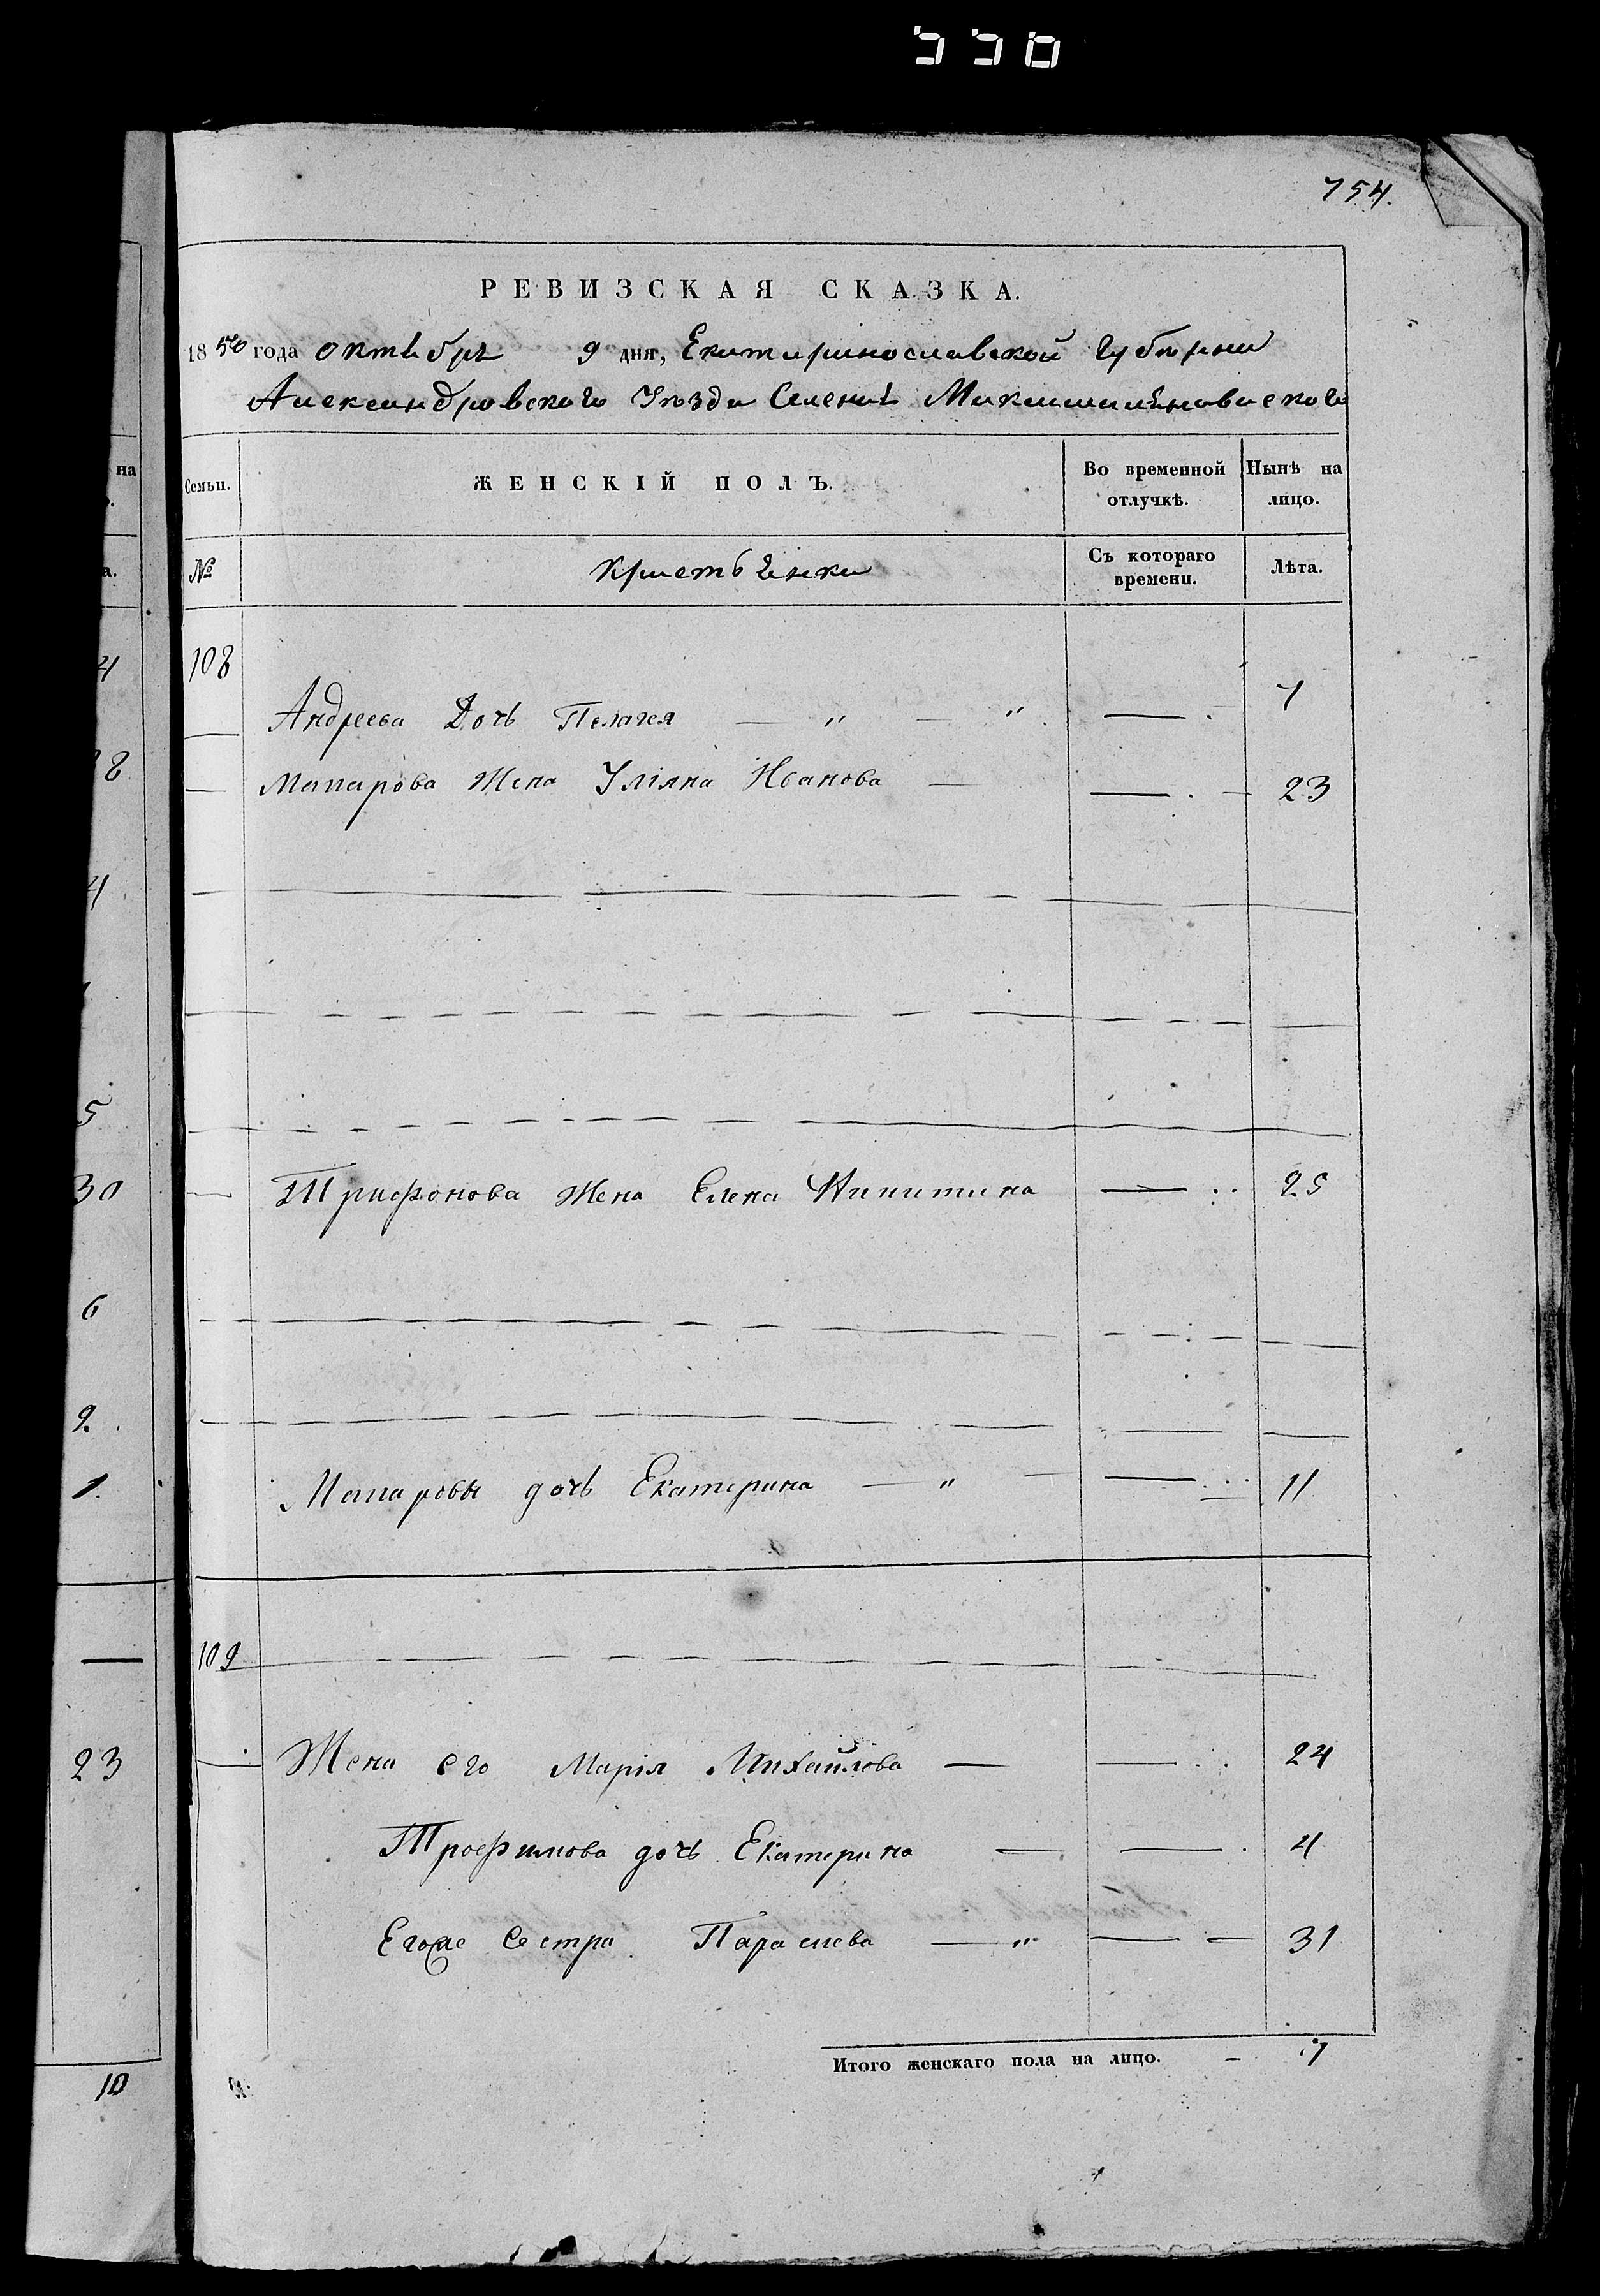 550
754.
РЕВИЗСКАЯ СКАЗКА.
1850 года октября 9 дня, Екатеринославской Губернии
Александровского Уѣзда Селенія Максимильяновского
Семьи. ЖЕНСКІЙ ПОЛЪ. Во временной отлучкѣ. Нынѣ на лицо.
№ Крестьянки Съ котораго времени. Лѣта.
108
Андреева Дочь Пелагея — " — " — 7
Макарова Жена Уліяна Иванова — — 23
Трифонова Жена Елена Никитина — 25
Макаровы дочь Екатерина — " — — 11
109
Жена его Марія Михайлова — — 24
Трофимова дочь Екатерина — — 4
Егоже Сестра Параскева — " — 31
Итого женскаго пола на лицо. — 7
на
4
8
4
5
30
6
2.
1.
23
10